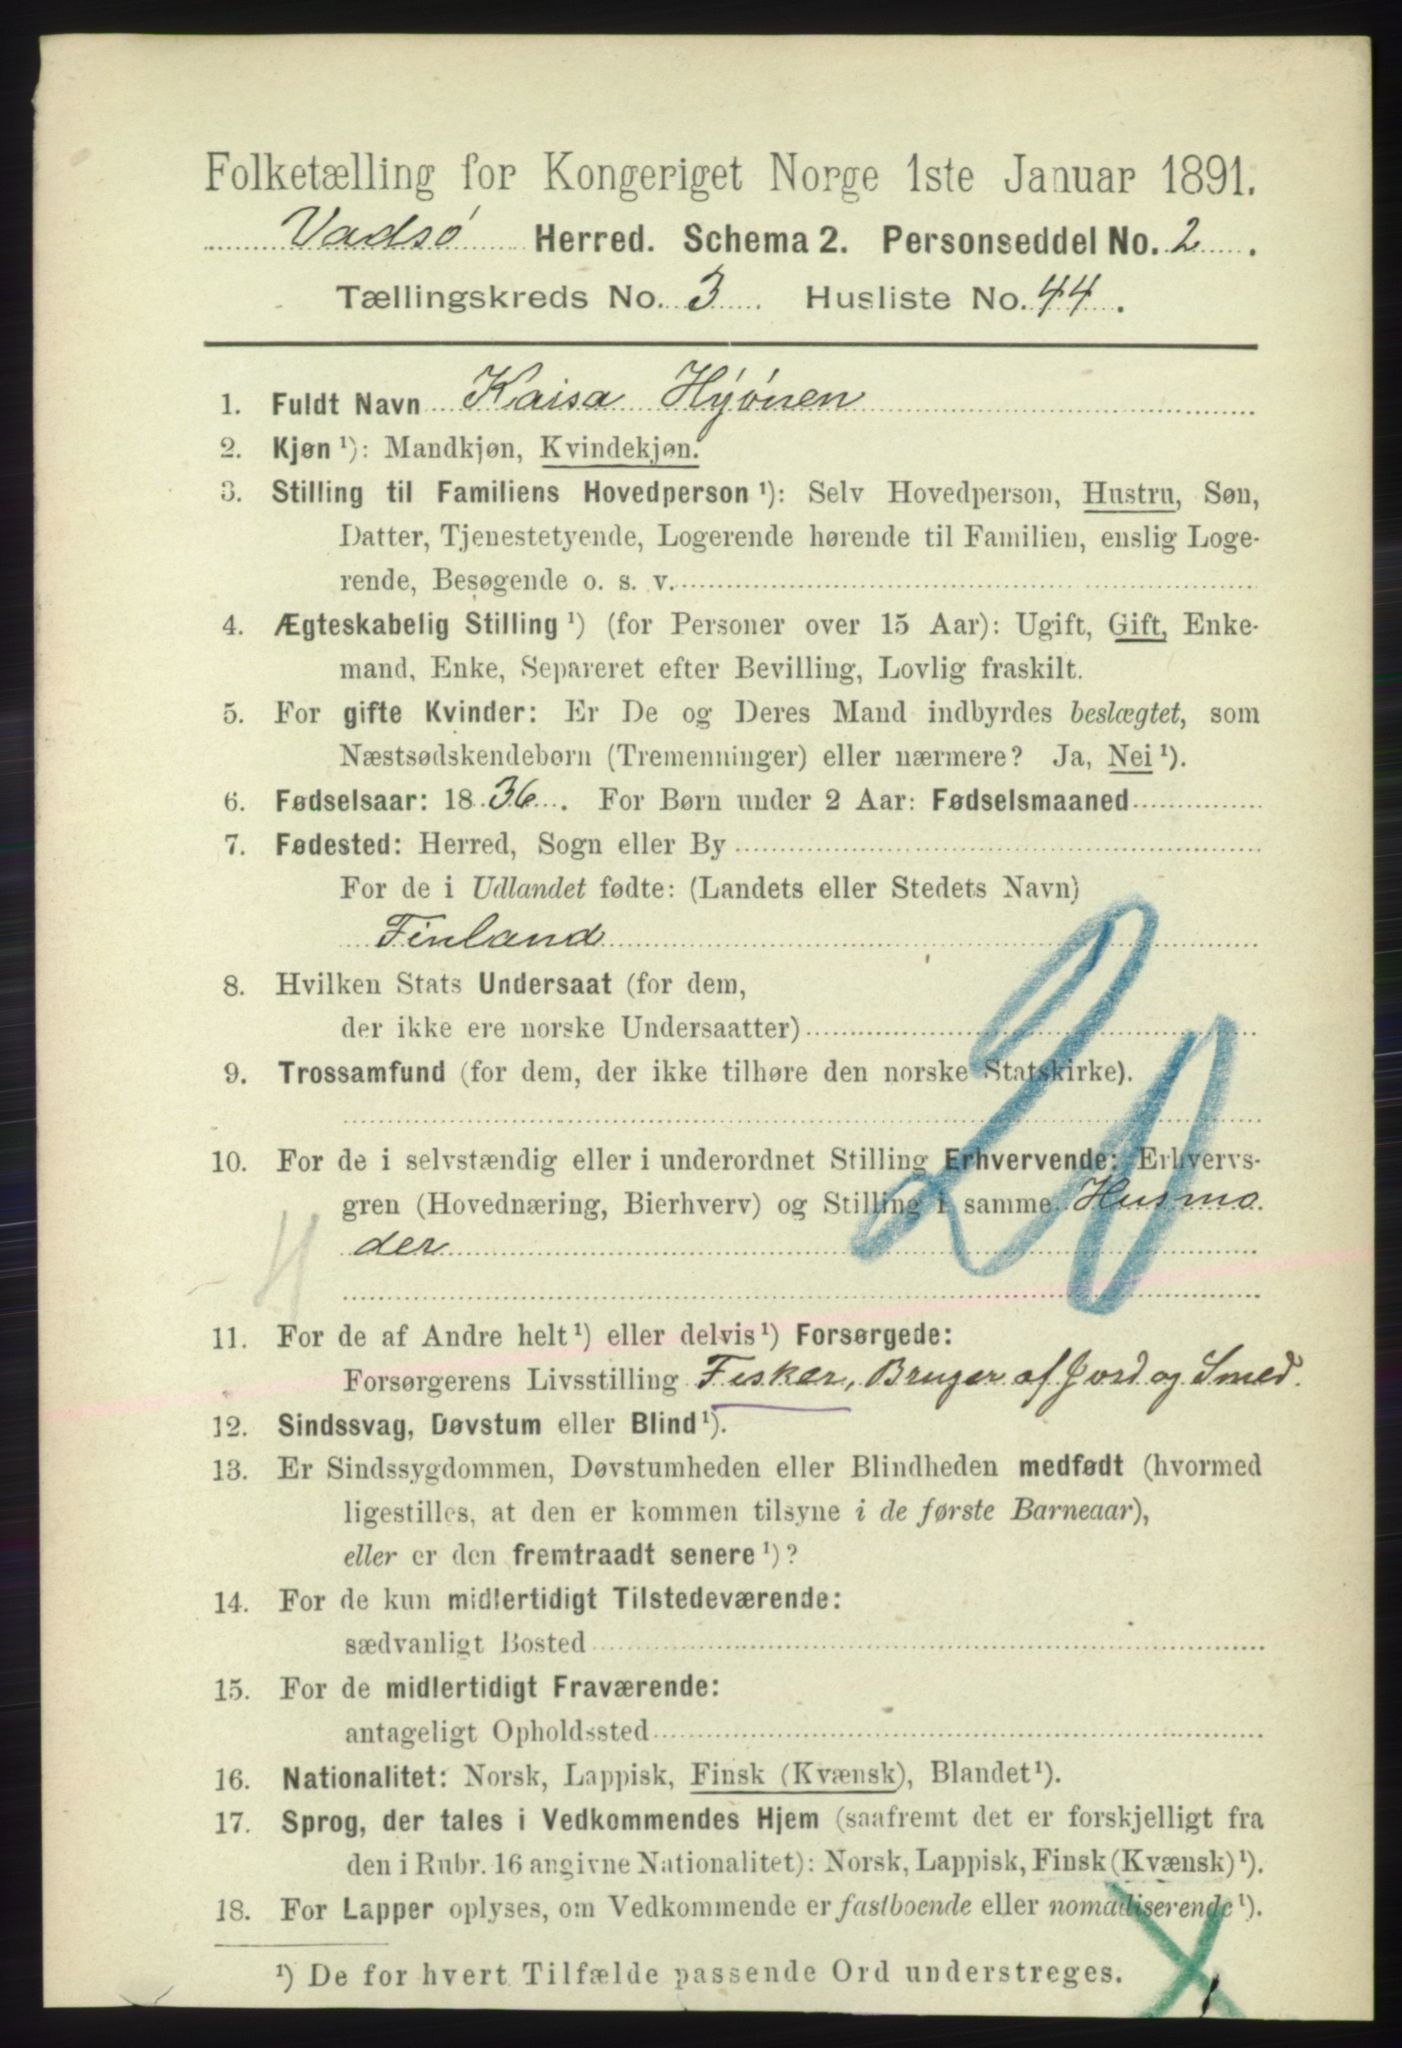 Folketælling for Kongeriget Norge 1ste Januar 1891.
Vadsø Herred. Schema 2. Personseddel No. 2.
Tællingskreds No. 3 Husliste No. 44.
1. Fuldt Navn Kaisa Hÿønen
2. Kjøn ¹): Mandkjøn, Kvindekjøn.
3. Stilling til Familiens Hovedperson ¹): Selv Hovedperson, Hustru, Søn,
Datter, Tjenestetyende, Logerende hørende til Familien, enslig Loge-
rende, Besøgende o. s. v.
4. Ægteskabelig Stilling ¹) (for Personer over 15 Aar): Ugift, Gift, Enke-
mand, Enke, Separeret efter Bevilling, Lovlig fraskilt.
5. For gifte Kvinder: Er De og Deres Mand indbyrdes beslægtet, som
Næstsødskendebørn (Tremenninger) eller nærmere? Ja, Nei ¹).
6. Fødselsaar: 1836. For Børn under 2 Aar: Fødselsmaaned
7. Fødested: Herred, Sogn eller By
For de i Udlandet fødte: (Landets eller Stedets Navn)
Finland
8. Hvilken Stats Undersaat (for dem,
der ikke ere norske Undersaatter)
9. Trossamfund (for dem, der ikke tilhøre den norske Statskirke).
10. For de i selvstændig eller i underordnet Stilling Erhvervende: Erhvervs-
gren (Hovednæring, Bierhverv) og Stilling i samme. Husmo
der
11. For de af Andre helt ¹) eller delvis ¹) Forsørgede:
Forsørgerens Livsstilling Fisker, Bruger af Jord og Smed.
12. Sindssvag, Døvstum eller Blind ¹).
13. Er Sindssygdommen, Døvstumheden eller Blindheden medfødt (hvormed
ligestilles, at den er kommen tilsyne i de første Barneaar),
eller er den fremtraadt senere ¹)?
14. For de kun midlertidigt Tilstedeværende:
sædvanligt Bosted
15. For de midlertidigt Fraværende:
antageligt Opholdssted
16. Nationalitet: Norsk, Lappisk, Finsk (Kvænsk), Blandet ¹).
17. Sprog, der tales i Vedkommendes Hjem (saafremt det er forskjelligt fra
den i Rubr. 16 angivne Nationalitet): Norsk, Lappisk, Finsk (Kvænsk) ¹).
18. For Lapper oplyses, om Vedkommende er fastboende eller nomadiserende ¹).
¹) De for hvert Tilfælde passende Ord understreges.